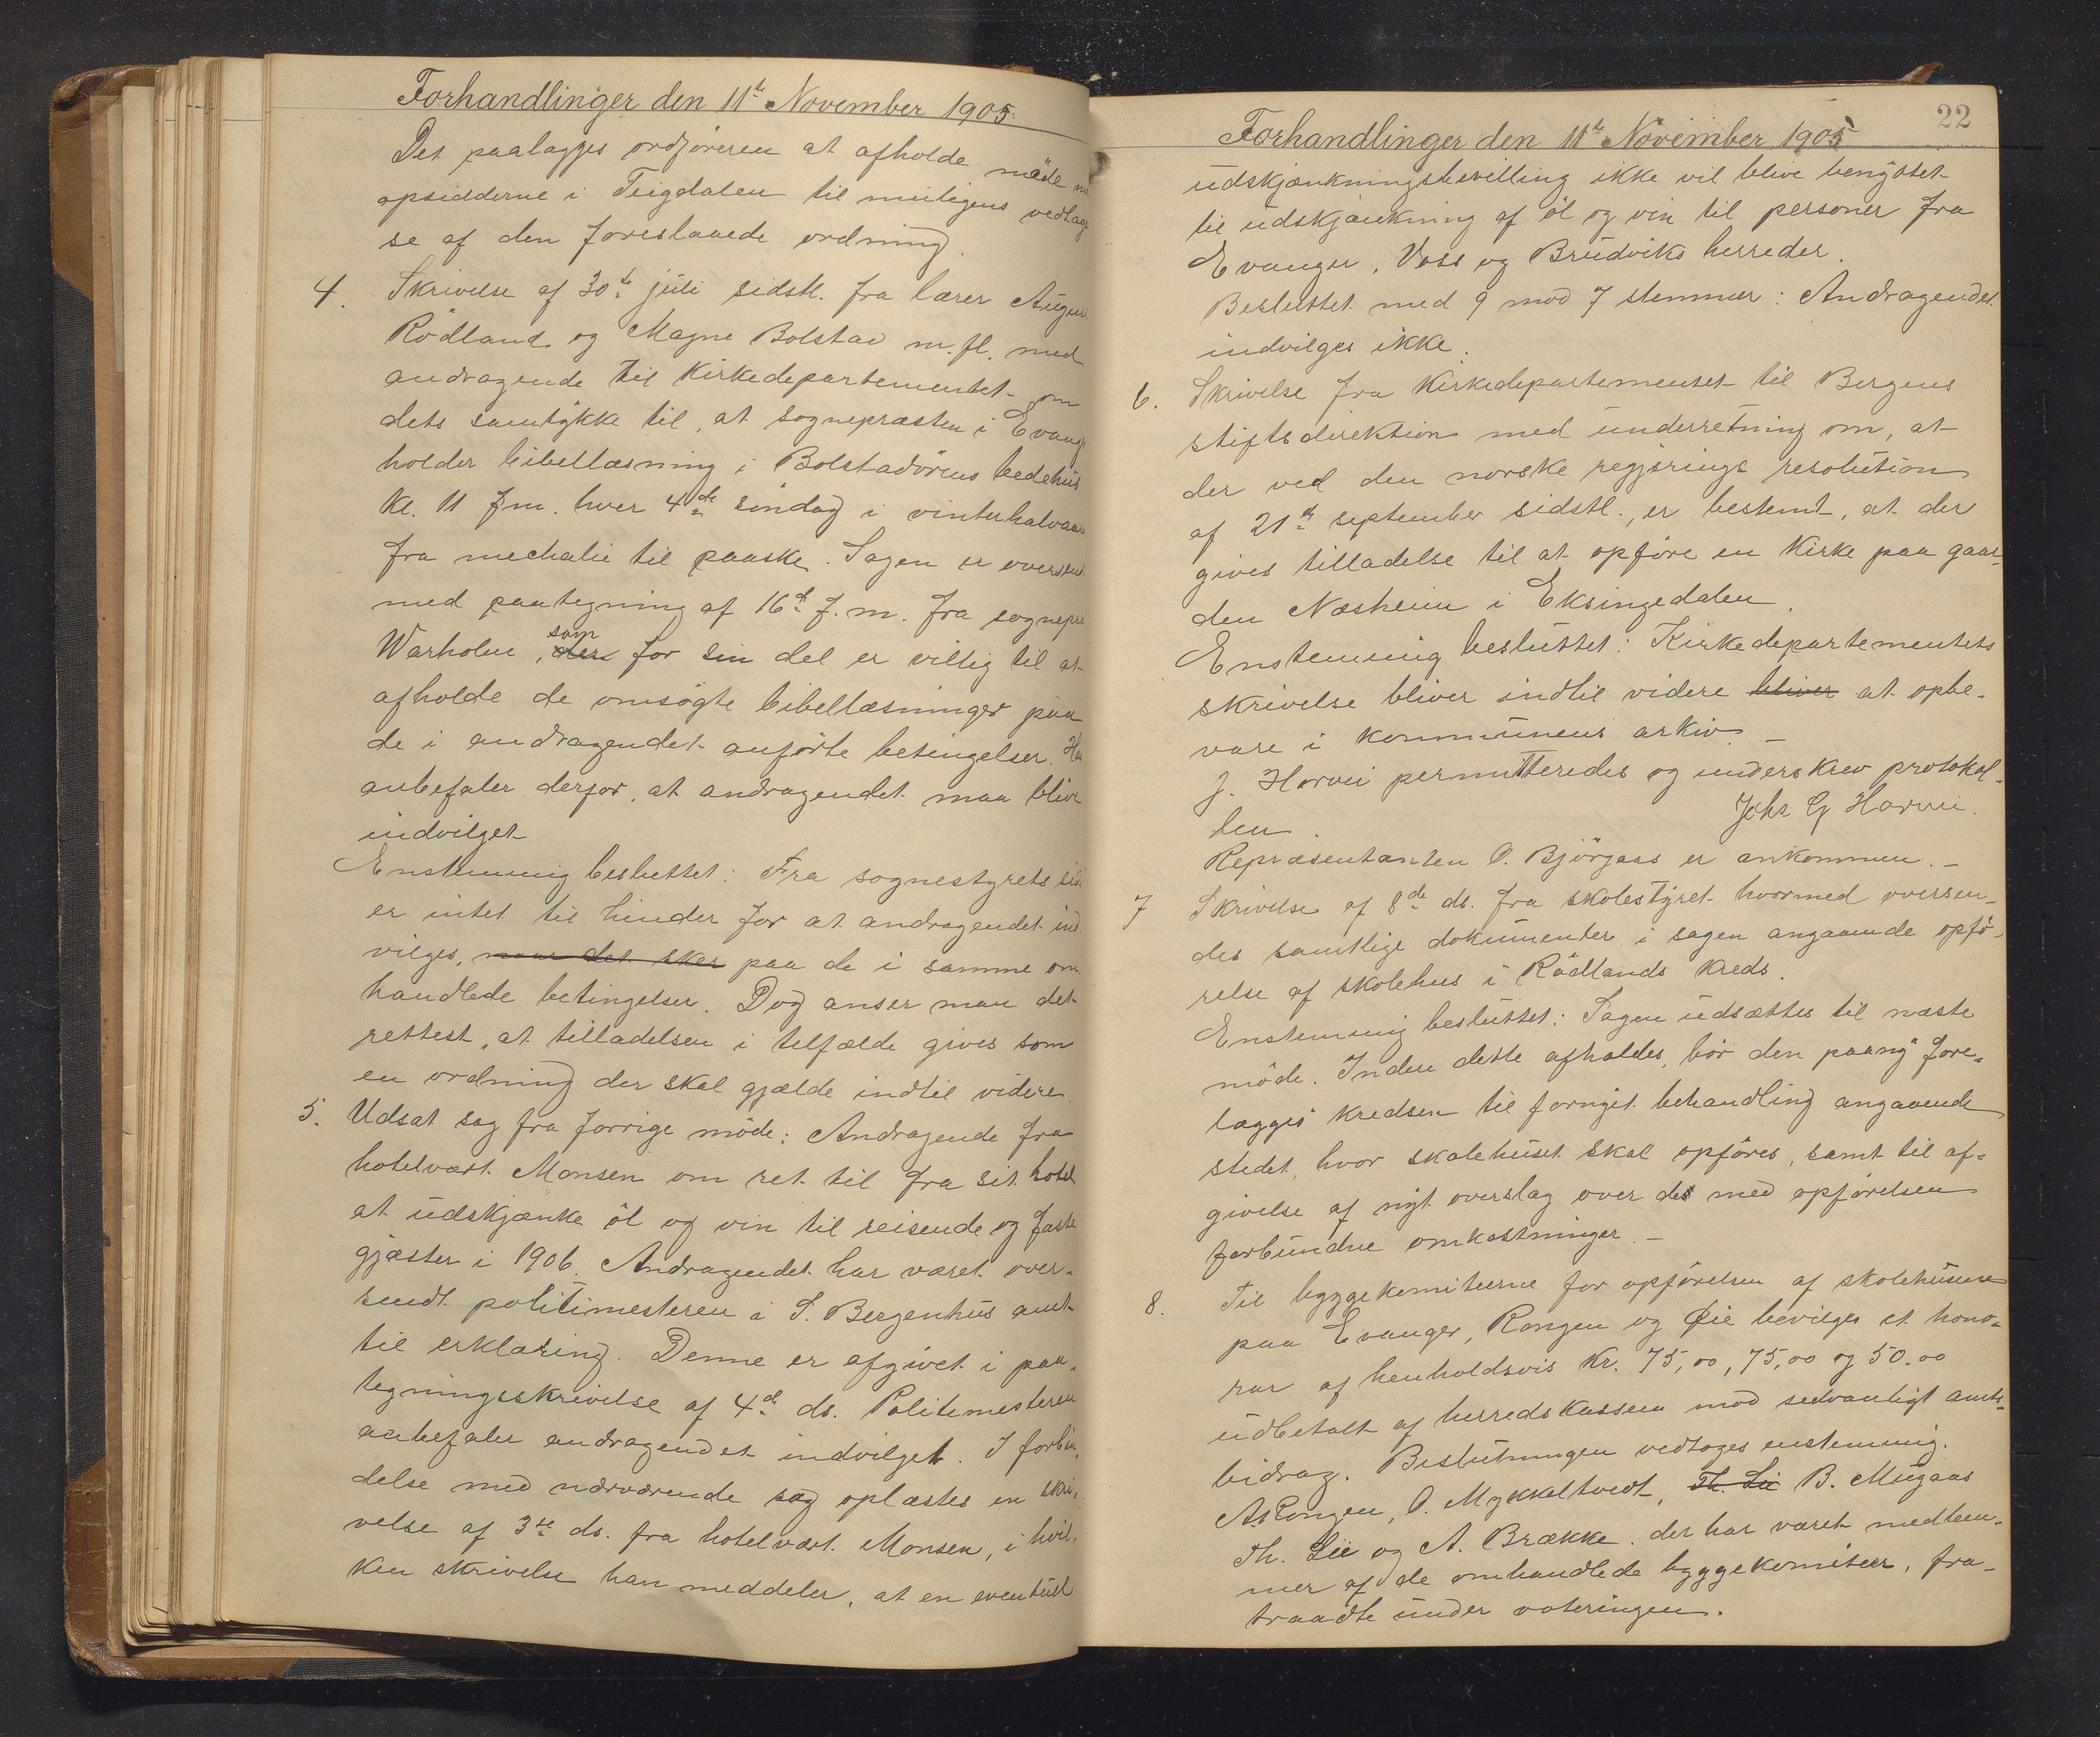 Forhandlinger den 11te November 1905.
Det paalægges ordføreren at afholde møde
opsidderne i Teigdalen til muligens vedtagel
se af den foreslaaede ordning.
4. Skrivelse af 30te juli sidstl. fra lærer August
Rödland og Magne Bolstad m. fl. med
andragende til Kirkedepartementet om
dets samtykke til, at sognepræsten i Evang
holder bibellæsning i Bolstadörens bedehus
kl. 11 fm. hver 4de söndag i vinterhalvaar
fra mechalie til paaske. Sagen er oversen
med paategning af 16de f. m. fra sognepr
Warholm, som der for sin del er villig til at
afholde de omsögte bibellæsninger paa
de i andragendet anförte betingelser. Han
anbefaler derfor, at andragendet maa blive
indvilget
Enstemmig besluttet: Fra sognestyrets side
er intet til hinder for at andragendet ind
vilges, naar det sker paa de i samme om
handlede betingelser. Dog anser man det
rettest, at tilladelsen i telfælde gives som
en ordning der skal gjælde indtil videre.
5. Udsat sag fra forrige möde: Andragende fra
hotelvært Monsen om ret til fra sit hotel
at udskjænke öl og vin til reisende og faste
gjæster i 1906. Andragendet har været over-
sendt politimesteren i S. Bergenhus amt
til erklæring. Denne er afgivet i paa-
tegningsskrivelse af 4de ds. Politimesteren
anbefaler andragendet indvilget. I forbin-
delse med nærværende sag oplæstes en skri-
velse af 3die ds. fra hotelvært Monsen, i hvil-
ken skrivelse han meddeler, at en eventuel
22
Forhandlinger den 11te November 1905
udskjænkningsbevilling ikke vil blive benyttet
til udskjænkning af öl og vin til personer fra
Evanger, Voss og Brudviks herreder.
Besluttet med 9 mod 7 stemmer: Andragendet
indvilges ikke.
6. Skrivelse fra Kirkedepartementet til Bergens
stiftsdirektion med underretning om, at
der ved den norske regjerings resolution
af 21de september sidstl., er bestemt, at der
gives tilladelse til at opföre en Kirke paa gaar-
den Næsheim i Eksingedalen.
Enstemmig besluttet: Kirkedepartementets
skrivelse bliver indtil videre bliver at opbe-
vare i kommunens arkiv. –
J. Horvei permitteredes og underskrev protokol-
len. Johs G Horvei.
Repræsentanten O. Björgaas er ankommen. –
7 Skrivelse af 8de ds. fra skolestyret hvormed oversen-
des samtlige dokumenter i sagen angaaende opfö-
relse af skolehus i Rödlands kreds.
Enstemmig besluttet: Sagen udsættes til næste
möde. Inden dette afholdes, bör den paany fore-
lægges kredsen til fornyet behandling angaaende
stedet, hvor skolehuset skal opföres, samt til af-
givelse af nyt overslag over de med opförelsen
forbundne omkostninger. –
8. Til byggekomiteerne for opförelsen af skolehusene
paa Evanger, Rongen og Øie bevilges et hono-
rar af henholdsvis kr. 75,00, 75,00 og 50,00
udbetalt af herredskassen mod sedvanligt amts-
bidrag. Beslutningen vedtoges enstemmig.
A. Rongen, O. Mykkeltvedt, Th. Lie B. Mügaas
Th. Lie og A. Brække. der har været medlem-
mer af de omhandlede byggekomiteer, fra-
traadte under voteringen.